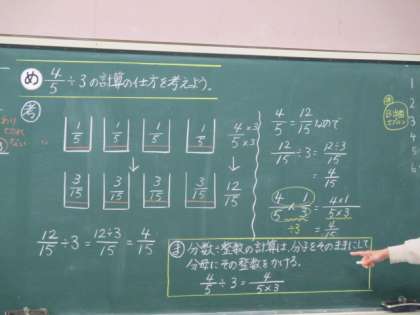 め 4/5 ÷ 3 の計算の仕方を考えよう。
考
1/5 1/5 1/5 1/5 4×3/5×3
↓ ↓
3/15 3/15 3/15 3/15 12/15
12/15 ÷ 3 = 12÷3/15 = 4/15
4/5 = 12/15 なので
12/15 ÷ 3 = 12÷3/15
= 4/15
4/5 × 1/3 = 4×1/5×3
÷3 = 4/15
ま 分数÷整数の計算は、分子をそのままにして
分母にその整数をかける。
4/5 ÷ 3 = 4/5×3